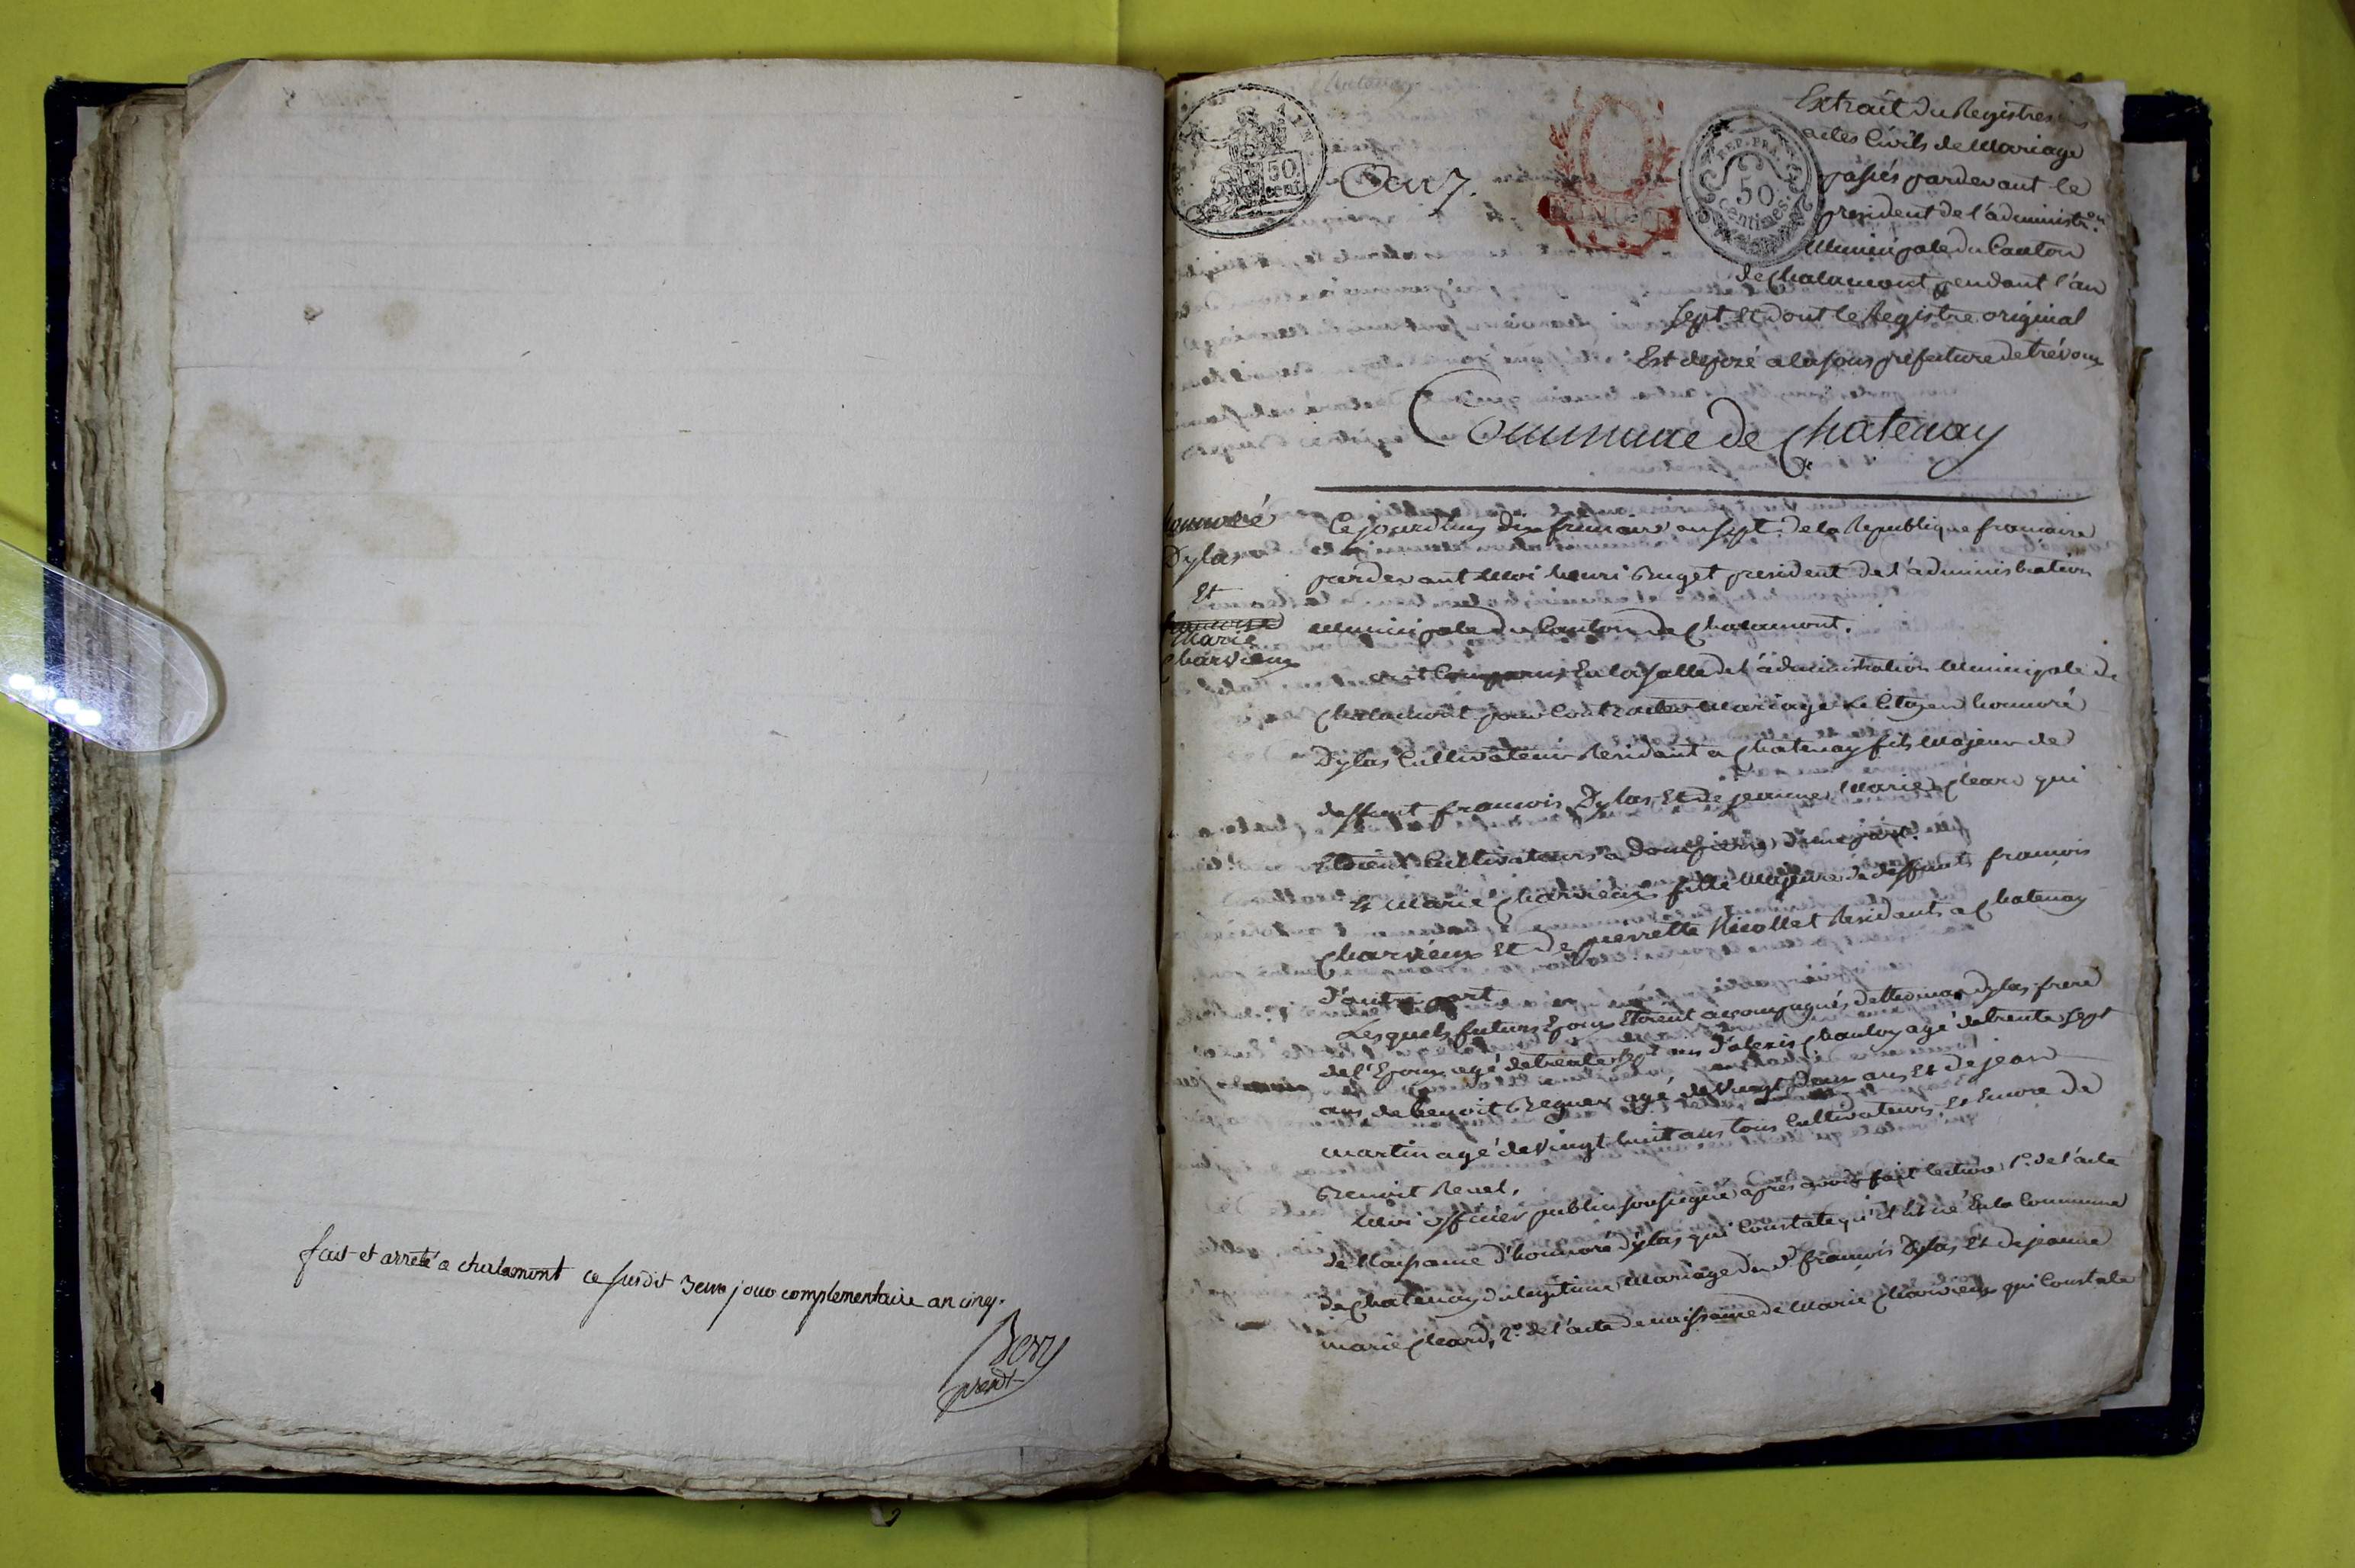 fait et arreté a chalamont ce susdit 3eme jour complementaire an cinq.
Bery
présdt
Chatenay
50
cent
An 7.
REP. FRA.
50
Centimes.
Extrait du Registre des
actes Civils de Mariage
passés pardevant le
president de l'administ.on
Municipale du Canton
de Chalamont pendant l'an
sept Et dont le Registre original
Est deposé a la sous prefecture de trévoux
Commune de Chatenay
honnoré
Dylas
Et
francoise
Marie
Charvieux
Ce jourdhuy dix frimaire an sept de la Republique francaise
pardevant Moi henri Buget president de l'administration
Municipale du Canton de Chalamont.
ont Comparus En la salle de l'administration Municipale de
Chalamont pour Contracter Mariage Le Citoyen honnoré
Dylas Cultivateur Residant a Chatenay fils Majeur de
deffunt francois Dylas Et de jeanne Marie Cleard qui
Etoient Cultivateurs a Dompierre d'une part.
Et Marie Charvieux fille Majeure de deffunts francois
Charvieux Et de pierrette Nicollet Residants a Chatenay
d'autre part
Lesquels futurs Epoux Etoient accompagnés de thomas Dylas frere
de l'Epoux agé de trente ans d'alexis Chanloy agé de trente sept
ans de benoit Reguer agé de vingt deux ans Et de jean
martin agé de vingt huit ans tous Cultivateurs, Et Encore de
Benoit Revel,
Moi officier public soussigné après avoir fait lecture 1.o de l'acte
de Naissance d'honnoré Dylas qui Constate qu'il Est né En la Commune
de Chatenay du legitime Mariage du d.t francois Dylas Et de jeanne
marie Cleard, 2.o de l'acte de naissance de Marie Charvieux qui Constate